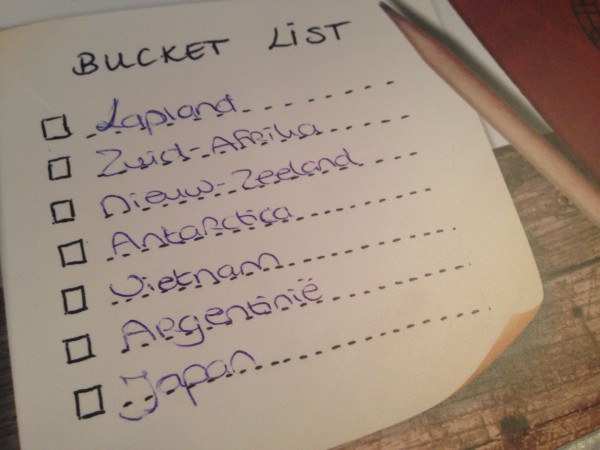 BUCKET LIST
Lapland
Zuid-Afrika
Nieuw-Zeeland
Antarctica
Vietnam
Argentinië
Japan